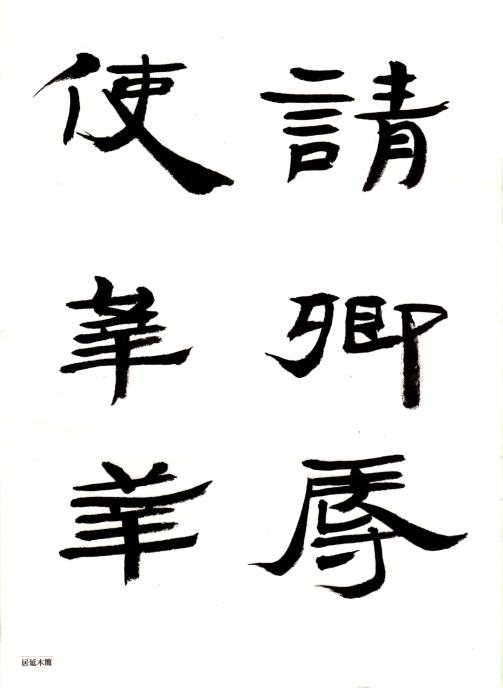 請卿辱
使幸幸
居延木簡